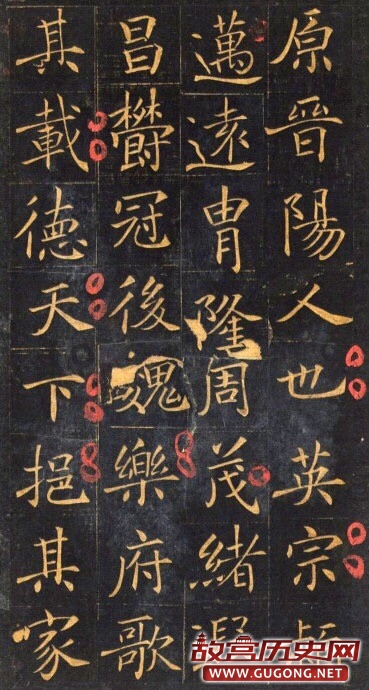 原晉陽人也英宗
邁遠冑隆周茂緒
昌欝冠後魏樂府歌
其載德天下挹其家
故宫历史网
WWW.GUGONG.NET